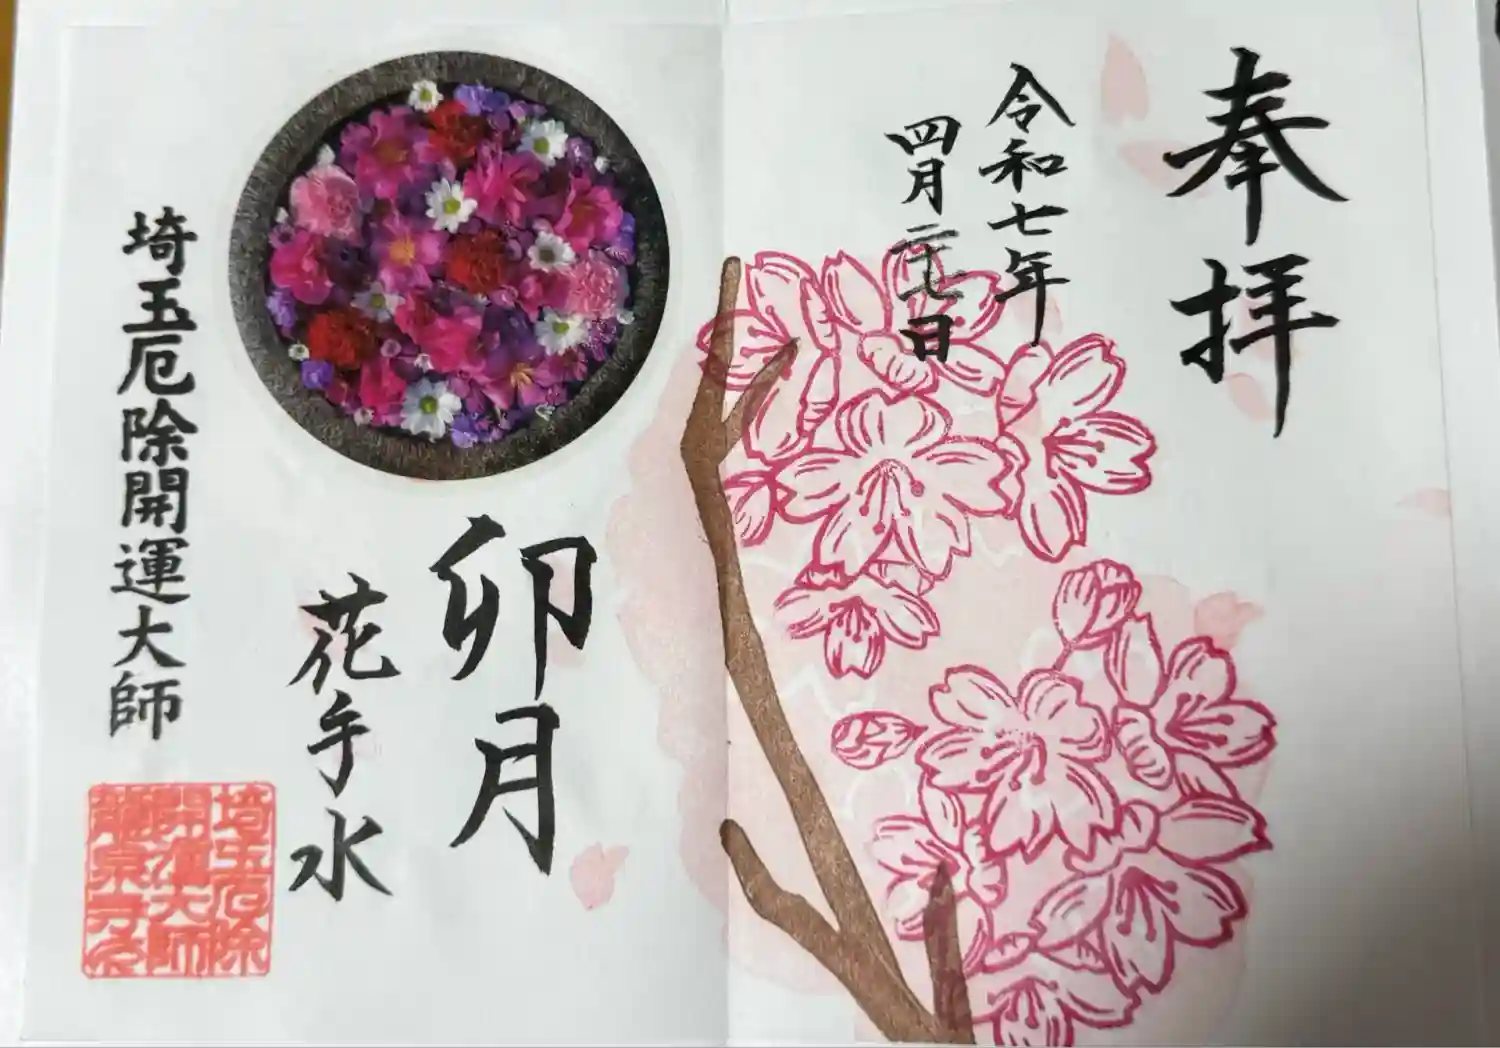 奉拝
令和七年
四月二十七日
卯月
花手水
埼玉厄除開運大師
埼玉厄除
開運大師
龍泉寺印